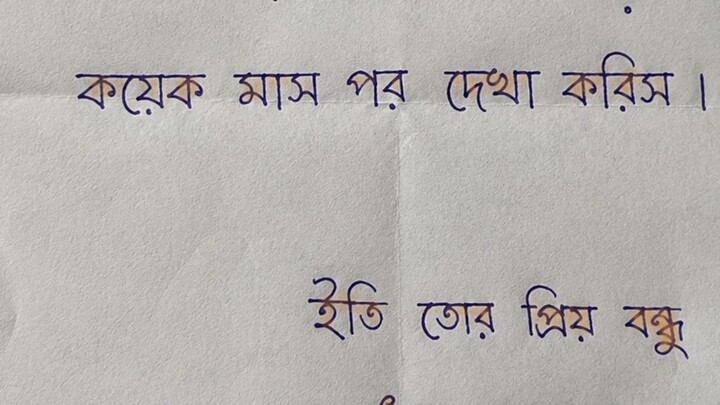 কয়েক মাস পর দেখা করিস।
ইতি তোর প্রিয় বন্ধু